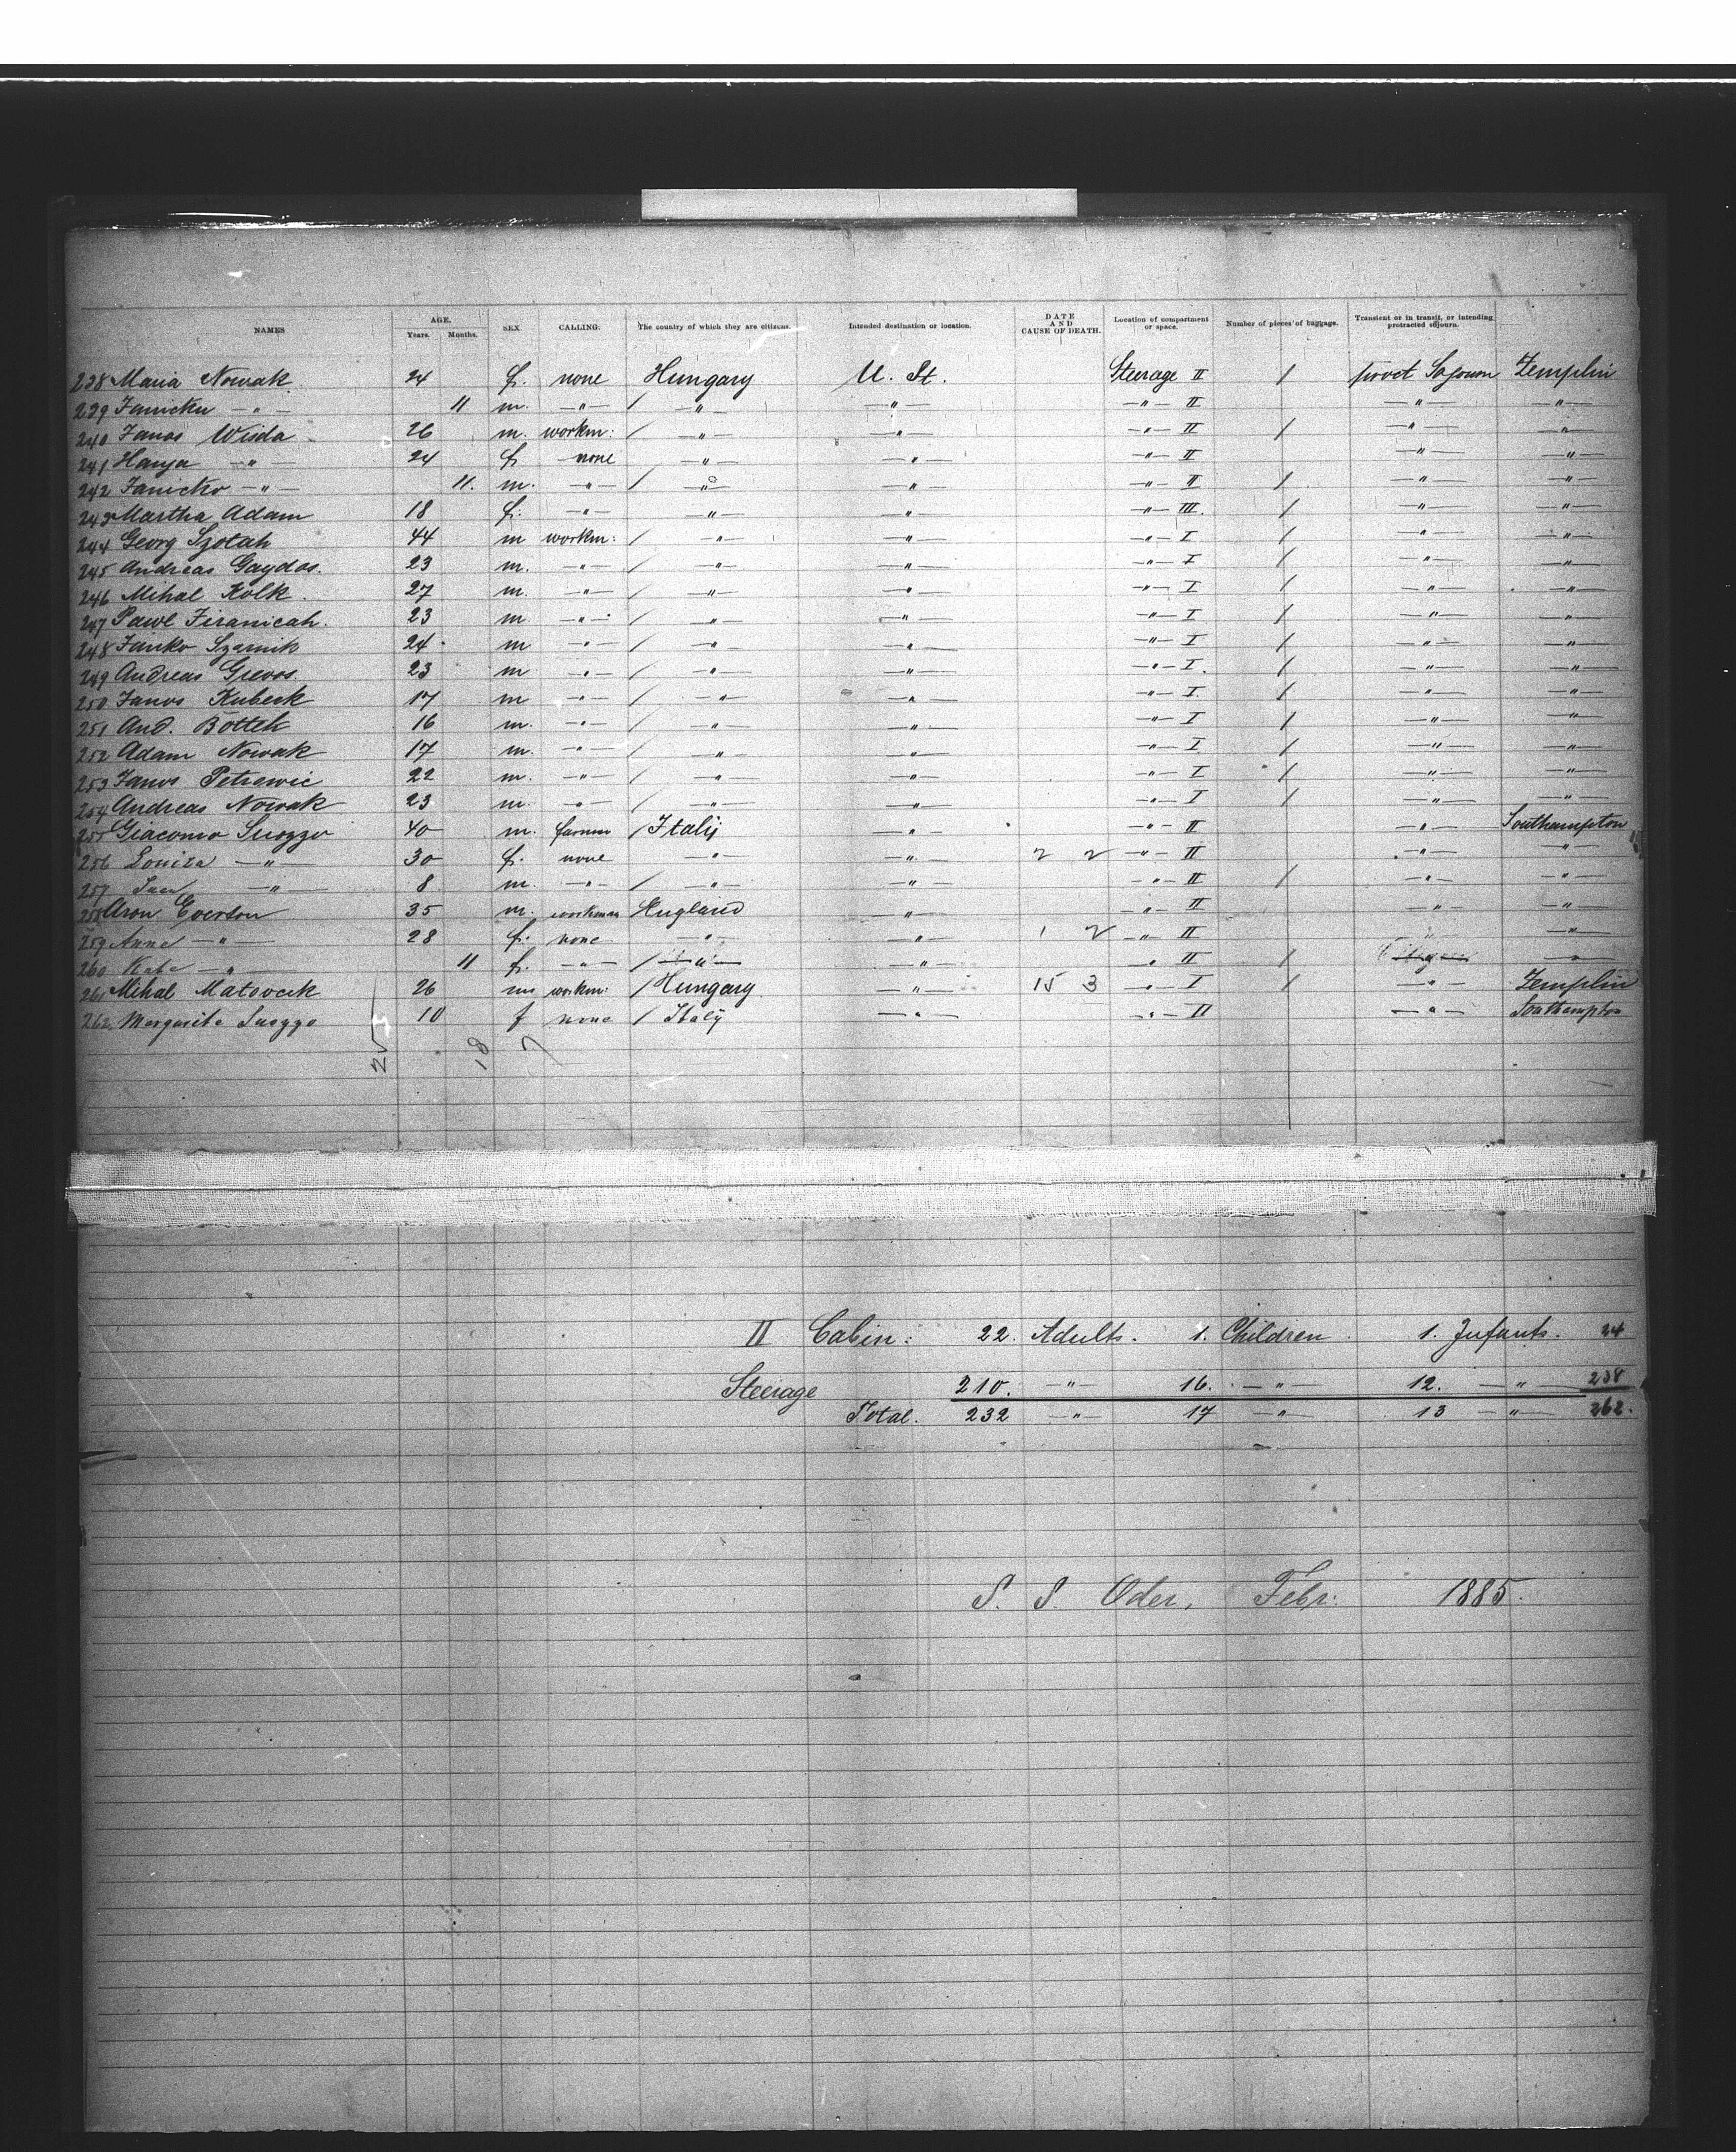 NAMES AGE. Years. Months. SEX. CALLING. The country of which they are citizens. Intended destination or location. DATE AND CAUSE OF DEATH. Location of compartment or space. Number of pieces of baggage. Transient or in transit, or intending protracted sojourn.
238 Maria Nowak 24 f. none Hungary U. St. Steerage II / provt Sojourn Zemplin
239 Janicku -"- 11 m. -"- / -"- -"- -"- II -"- -"-
240 Janos Wisda 26 m. workm: / -"- -"- -"- II / -"- -"-
241 Hanja -"- 24 f. none -"- -"- -"- II -"- -"-
242 Janicko -"- 11. m. -"- / -"- -"- -"- II / -"- -"-
243 Martha Adam 18 f. -"- -"- -"- -"- III. / -"- -"-
244 Georg Szotah 44 m workm: / -"- -"- -"- I / -"- -"-
245 Andreas Gaydos. 23 m. -"- / -"- -"- -"- I / -"- -"-
246 Mihal Kolk. 27 m. -"- / -"- -"- -"- I / -"- -"-
247 Pawl Ziranicah. 23 m -"- / -"- -"- -"- I / -"- -"-
248 Janko Szarnik 24 m -"- / -"- -"- -"- I / -"- -"-
249 Andreas Grevos. 23 m -"- / -"- -"- -"- I. / -"- -"-
250 Janos Kubeck 17 m -"- / -"- -"- -"- I. / -"- -"-
251 And. Botteh 16 m. -"- / -"- -"- -"- I / -"- -"-
252 Adam Nowak 17 m. -"- / -"- -"- -"- I / -"- -"-
253 Janos Petrewic 22 m. -"- / -"- -"- -"- I / -"- -"-
254 Andreas Nowak 23 m. -"- / -"- -"- -"- I / -"- -"-
255 Giacomo Suozzo 40 m. farmer / Italy -"- -"- II -"- Southampton
256 Louiza -"- 30 f. none -"- -"- 2 2 -"- II -"- -"-
257 -"- 8 m. -"- / -"- -"- -"- II / -"- -"-
258 Aron Everton 35 m. workman England -"- -"- II -"- -"-
259 Anna -"- 28 f. none -"- -"- 1 2 -"- II -"- -"-
260 Kate -"- 11 f. -"- / -"- -"- -"- II / -"-
261 Mihal Matovcik 26 m workm: / Hungary -"- 15 3 -"- I / -"- Zemplin
262 Margarita Suozzo 10 f none / Italy -"- -"- II -"- Southampton
25 18 7
II Cabin: 22. Adults. 1. Children. 1. Infants. 24
Steerage 210. -"- 16. -"- 12. -"- 238
Total. 232 -"- 17 -"- 13 -"- 262.
S. S. Oder, Febr: 1885.